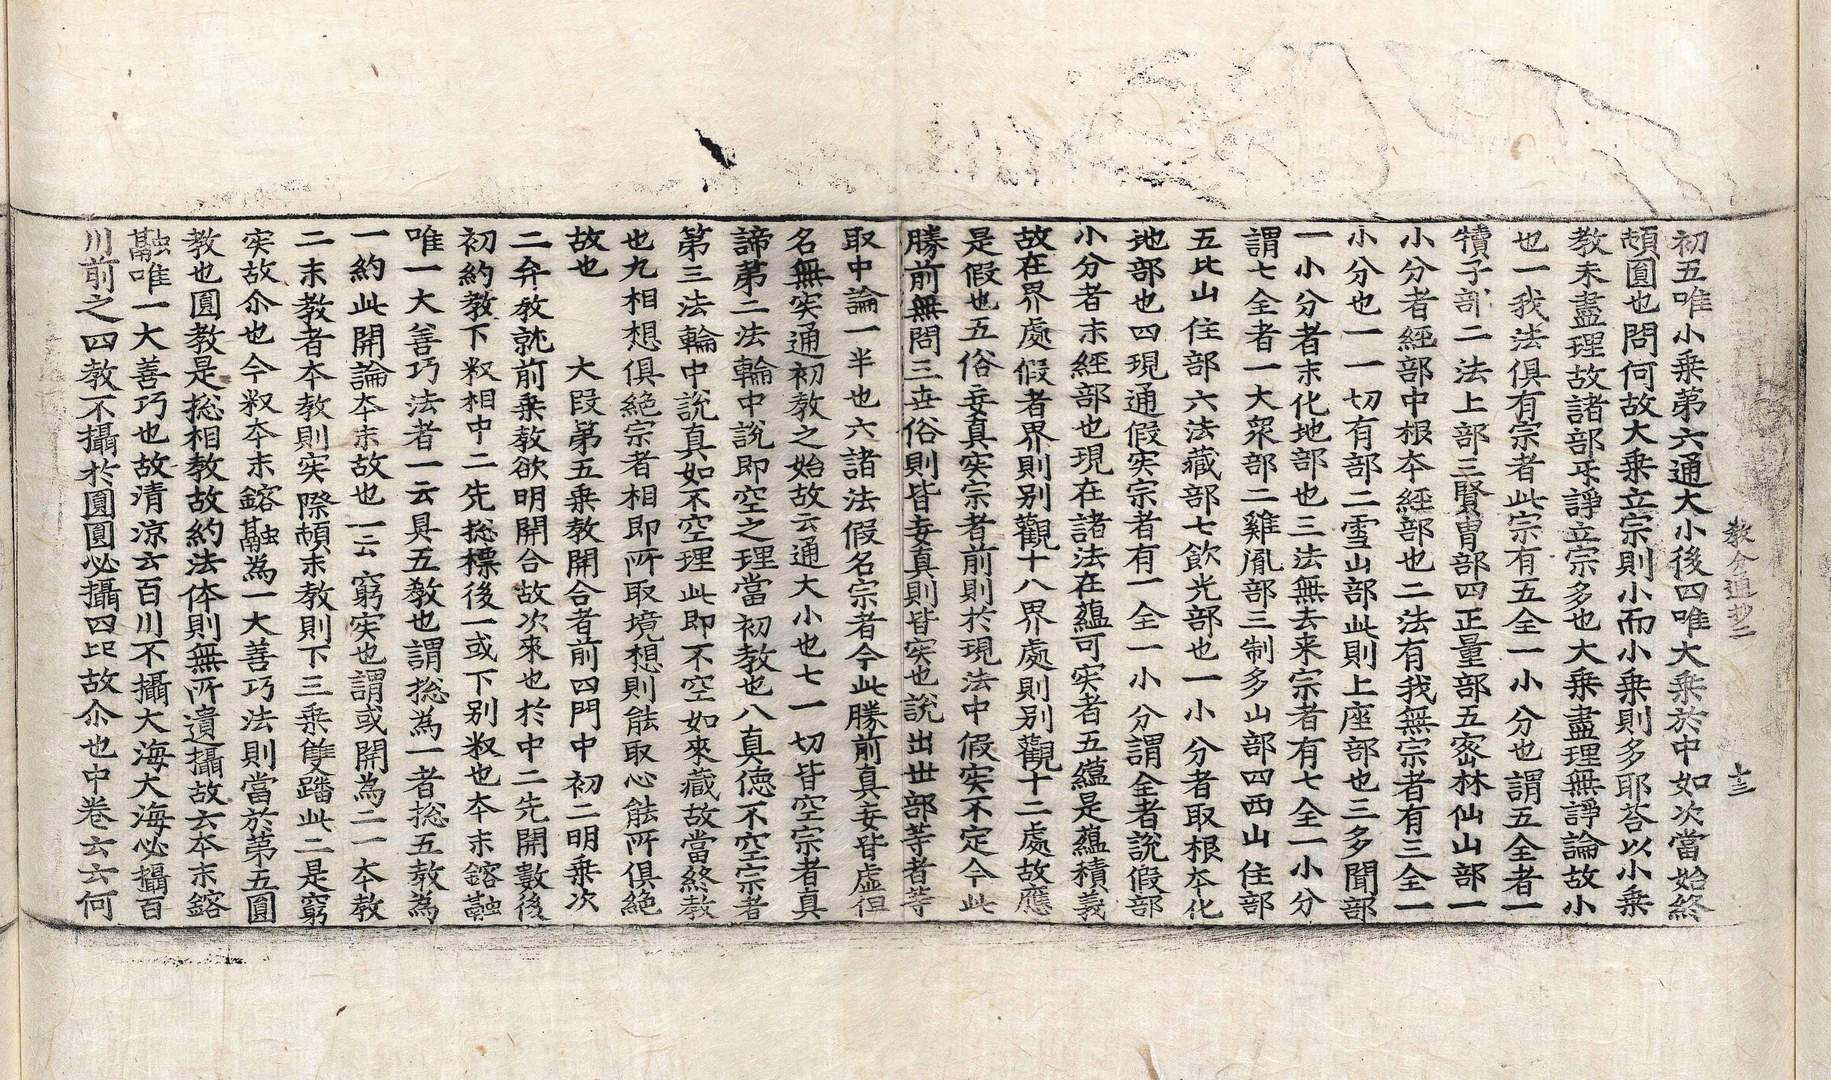 教分通抄二
十三
初五唯小乗第六通大小後四唯大乗於中如次當始終
頓圓也問何故大乗立宗則小而小乗則多耶荅以小乗
教未盡理故諸部乐諍立宗多也大乗盡理無諍論故小
也一我法俱有宗者此宗有五全一小分也謂五全者一
犢子部二法上部三賢胄部四正量部五密林仙山部一
小分者經部中根夲經部也二法有我無宗者有三全一
小分也一一切有部二雪山部此則上座部也三多聞部
一小分者末化地部也三法無去来宗者有七全一小分
謂七全者一大衆部二雞胤部三制多山部四西山住部
五北山住部六法藏部七飲光部也一小分者取根夲化
地部也四現通假実宗者有一全一小分謂全者說假部
小分者末經部也現在諸法在蘊可実者五蘊是蘊積義
故在界處假者界則别觀十八界處則别觀十二處故應
是假也五俗妄真実宗者前則於現法中假実不定今此
勝前無問三世俗則皆妄真則皆実也說出世部等者等
取中論一半也六諸法假名宗者今此勝前真妄皆虛但
名無実通初教之始故云通大小也七一切皆空宗者真
諦第二法輪中說即空之理當初教也八真德不空宗者
第三法輪中說真如不空理此即不空如來藏故當終教
也九相想俱絶宗者相即所取境想則能取心能所俱絶
故也 大段第五乗教開合者前四門中初二明乗次
二弁教就前乗教欲明開合故次來也於中二先開數後
初約教下叙相中二先捴標後一或下别叙也夲末鎔融
唯一大善巧法者一云具五教也謂捴為一者捴五教為
一約此開論夲末故也一云窮実也謂或開為二一夲教
二末教者夲教則実際頓末教則下三乗雙躊此二是窮
実故尒也今叙夲末鎔融為一大善巧法則當於第五圓
教也圓教是捴相教故約法体則無所遺攝故云夲末鎔
融唯一大善巧也故清涼云百川不攝大海大海必攝百
川前之四教不攝於圓圓必攝四比故尒也中卷云云何